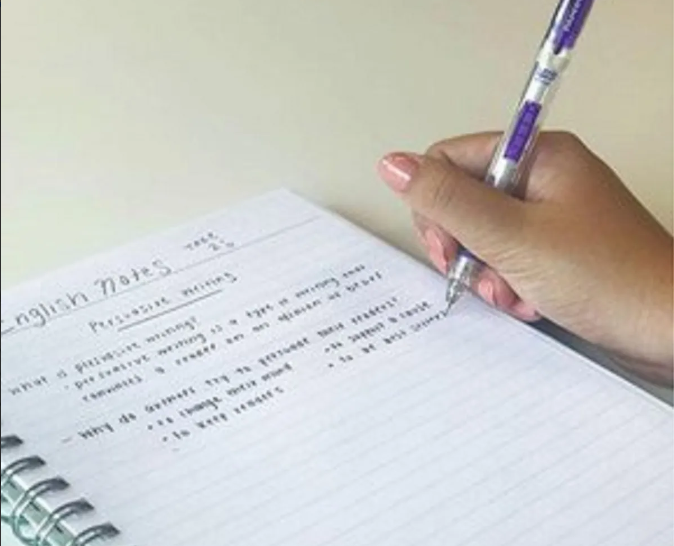 English Notes
Persuasive Writing
What is persuasive writing?
• persuasive writing is a type of writing that
convinces a reader on an opinion or
- Why do authors try to persuade their readers?
• to change their mind
• to support a cause
• to keep readers
• to be best